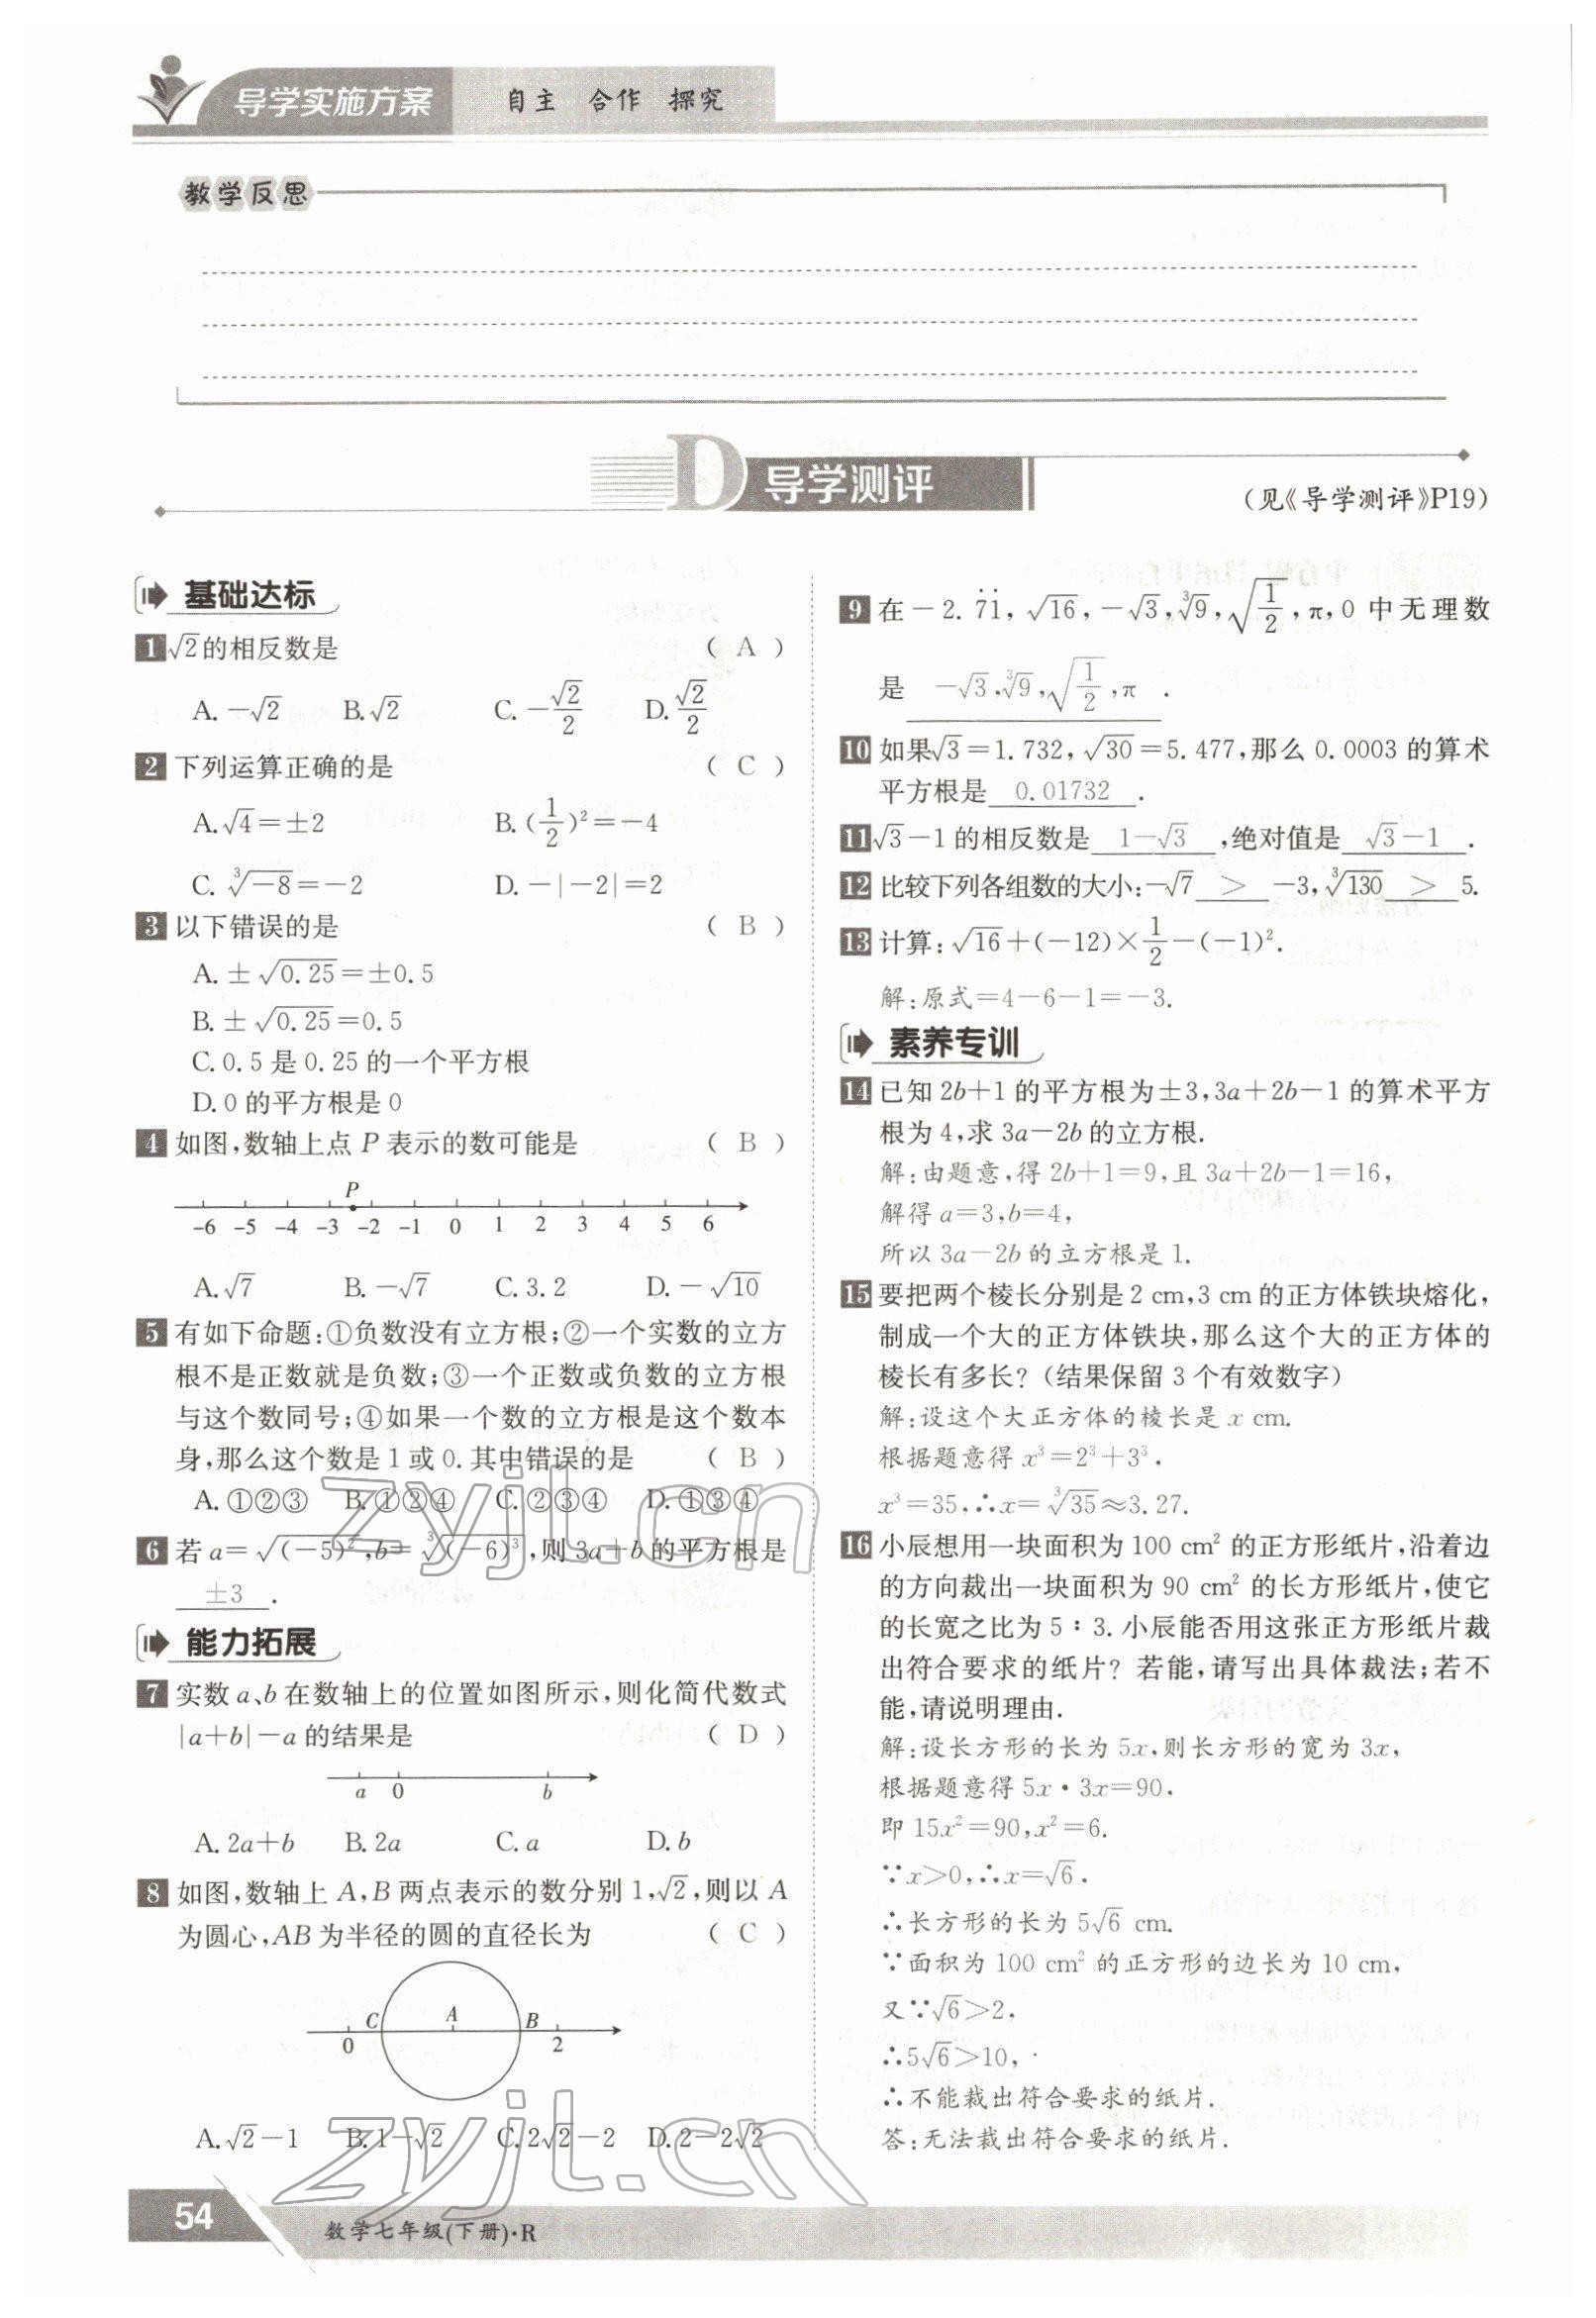 导学实施方案 自主 合作 探究
教学反思
D 导学测评
(见《导学测评》P19)
基础达标
1 √2的相反数是 ( A )
A. −√2 B. √2 C. −√2/2 D. √2/2
2 下列运算正确的是 ( C )
A. √4=±2 B. (1/2)²=−4
C. ∛−8=−2 D. −|−2|=2
3 以下错误的是 ( B )
A. ±√0.25=±0.5
B. ±√0.25=0.5
C. 0.5 是 0.25 的一个平方根
D. 0 的平方根是 0
4 如图,数轴上点 P 表示的数可能是 ( B )
P
−6 −5 −4 −3 −2 −1 0 1 2 3 4 5 6
A. √7 B. −√7 C. 3.2 D. −√10
5 有如下命题:①负数没有立方根;②一个实数的立方
根不是正数就是负数;③一个正数或负数的立方根
与这个数同号;④如果一个数的立方根是这个数本
身,那么这个数是 1 或 0. 其中错误的是 ( B )
A. ①②③ B. ①②④ C. ②③④ D. ①③④
6 若 a=√(−5)²,b=∛(−6)³,则 3a+b 的平方根是
±3 .
能力拓展
7 实数 a、b 在数轴上的位置如图所示,则化简代数式
|a+b|−a 的结果是 ( D )
a 0 b
A. 2a+b B. 2a C. a D. b
8 如图,数轴上 A,B 两点表示的数分别 1,√2,则以 A
为圆心,AB 为半径的圆的直径长为 ( C )
C A B
0 2
A. √2−1 B. 1−√2 C. 2√2−2 D. 2−2√2
9 在−2.7̇1̇,√16,−√3,∛9,√1/2,π,0 中无理数
是 −√3,∛9,√1/2,π .
10 如果√3=1.732,√30=5.477,那么 0.0003 的算术
平方根是 0.01732 .
11 √3−1 的相反数是 1−√3 ,绝对值是 √3−1 .
12 比较下列各组数的大小:−√7 > −3,∛130 > 5.
13 计算:√16+(−12)×1/2−(−1)².
解:原式=4−6−1=−3.
素养专训
14 已知 2b+1 的平方根为±3,3a+2b−1 的算术平方
根为 4,求 3a−2b 的立方根.
解:由题意,得 2b+1=9,且 3a+2b−1=16,
解得 a=3,b=4,
所以 3a−2b 的立方根是 1.
15 要把两个棱长分别是 2 cm,3 cm 的正方体铁块熔化,
制成一个大的正方体铁块,那么这个大的正方体的
棱长有多长?(结果保留 3 个有效数字)
解:设这个大正方体的棱长是 x cm.
根据题意得 x³=2³+3³.
x³=35,∴x=∛35≈3.27.
16 小辰想用一块面积为 100 cm² 的正方形纸片,沿着边
的方向裁出一块面积为 90 cm² 的长方形纸片,使它
的长宽之比为 5∶3. 小辰能否用这张正方形纸片裁
出符合要求的纸片? 若能,请写出具体裁法;若不
能,请说明理由.
解:设长方形的长为 5x,则长方形的宽为 3x,
根据题意得 5x·3x=90.
即 15x²=90,x²=6.
∵x>0,∴x=√6.
∴长方形的长为 5√6 cm.
∵面积为 100 cm² 的正方形的边长为 10 cm,
又∵√6>2.
∴5√6>10,
∴不能裁出符合要求的纸片.
答:无法裁出符合要求的纸片.
zyjl.cn
zyjl.cn
54 数学七年级(下册)·R